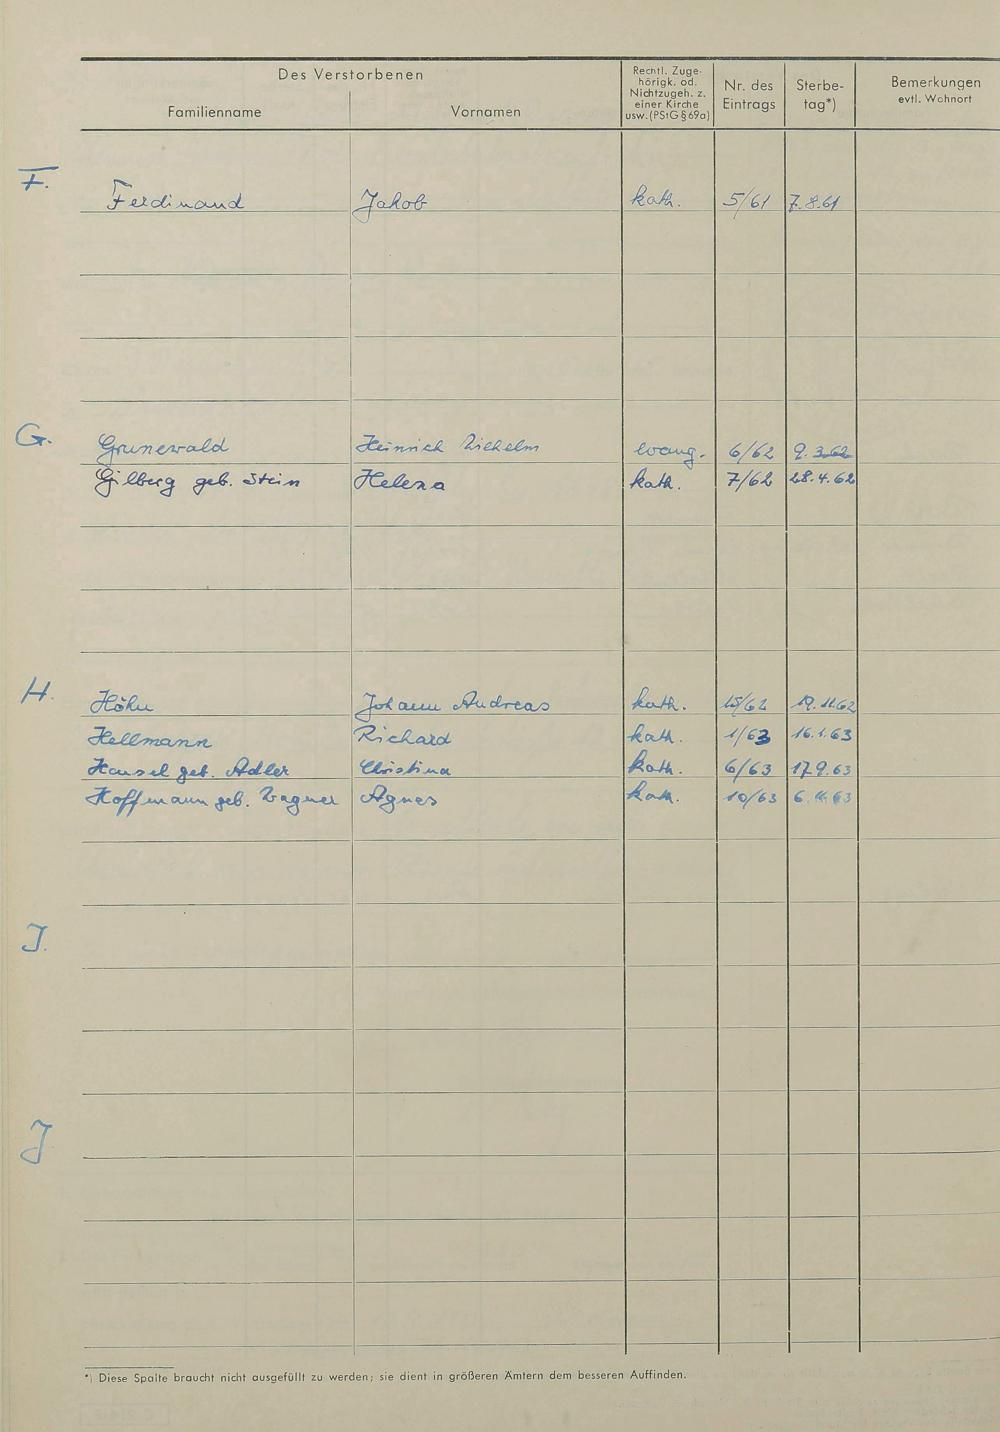 Des Verstorbenen
Familienname
Vornamen
Rechtl. Zuge-
hörigk. od.
Nichtzugeh. z.
einer Kirche
usw. (PStG § 69a)
Nr. des
Eintrags
Sterbe-
tag*)
Bemerkungen
evtl. Wohnort
F.
Ferdinand Jakob kath. 5/61 7.8.61
G.
Grunewald Heinrich Wilhelm evang. 6/62 9.3.62
Gilberg geb. Stein Helena kath. 7/62 28.4.62
H.
Höhn Johann Andreas kath. 15/62 19.11.62
Hellmann Richard kath. 1/63 16.1.63
Hansel geb. Adler Christina kath. 6/63 17.9.63
Hoffmann geb. Wagner Agnes kath. 10/63 6.11.63
J.
J
*) Diese Spalte braucht nicht ausgefüllt zu werden; sie dient in größeren Ämtern dem besseren Auffinden.